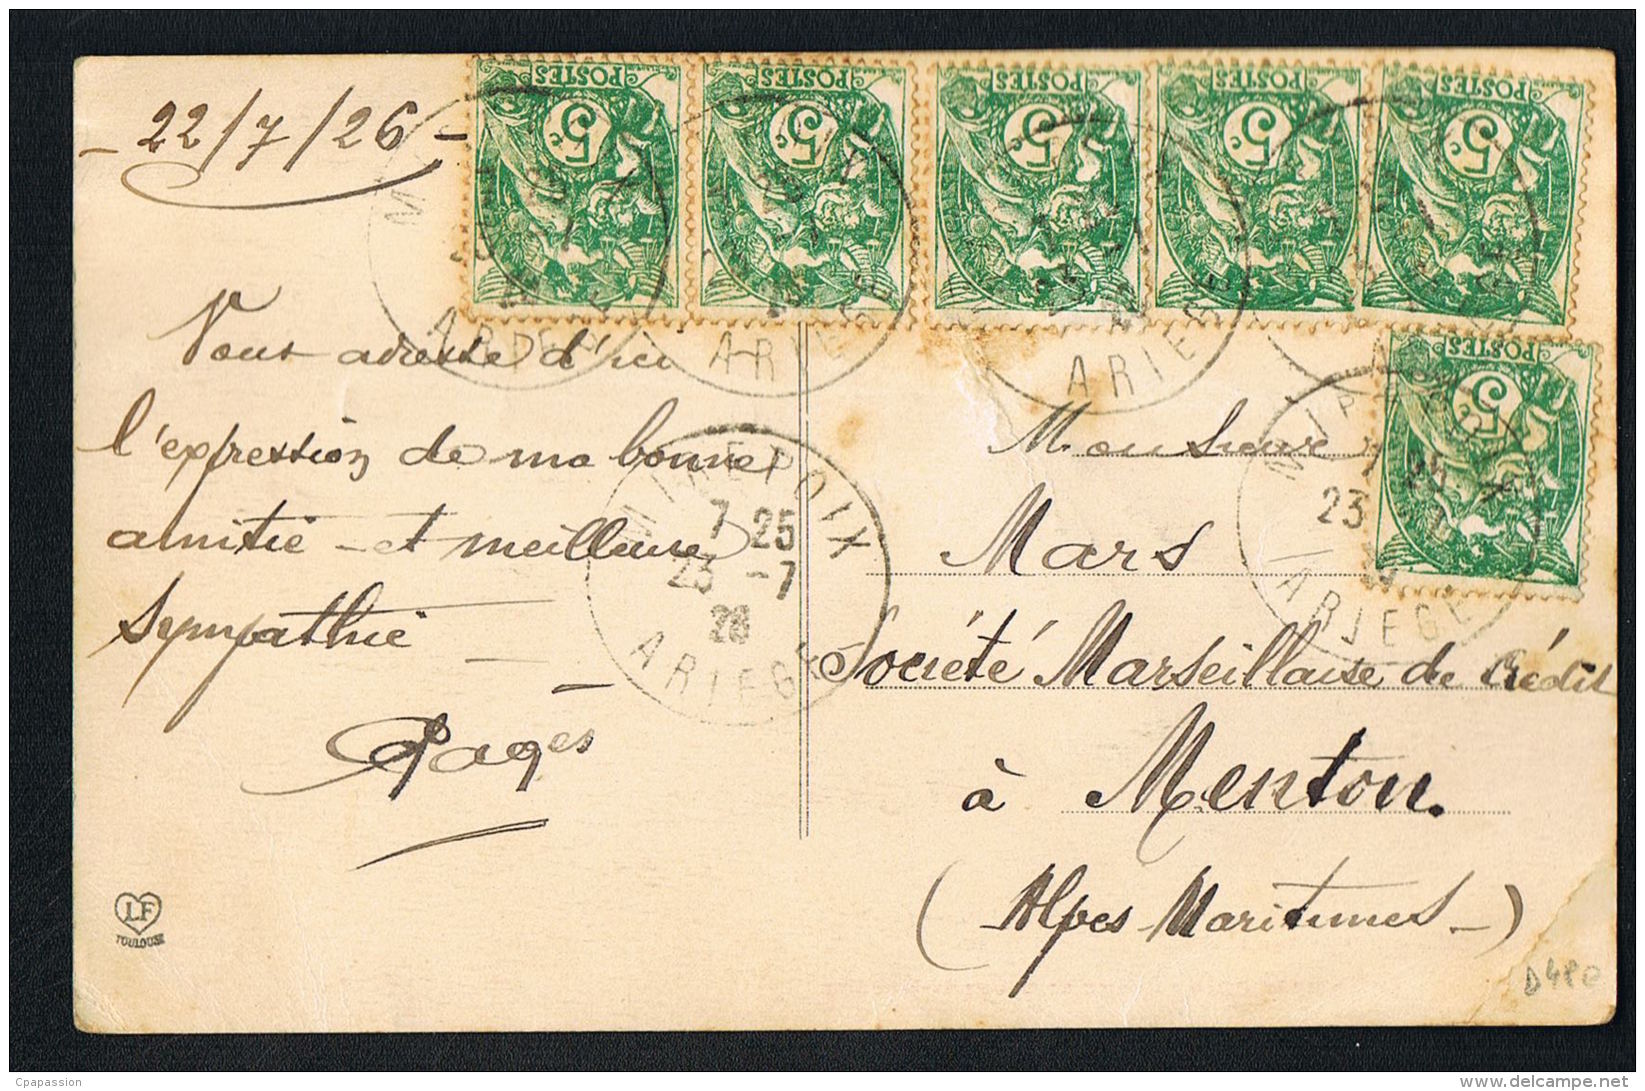 - 22/7/26 -
POSTES
5c
POSTES
5c
POSTES
5c
POSTES
5c
POSTES
5c
POSTES
5c
Vous adresse d'ici
l'expression de ma bonne
amitié - et meilleure
sympathie -
Pagés
MIREPOIX
7 25
23 -7
26
ARIEGE
ARIEGE
ARIEGE
ARIEGE
MIREPOIX
7 25
23
ARIEGE
Monsieur
Mars
Société Marseillaise de Crédit
à Menton.
(Alpes-Maritimes -)
LF
TOULOUSE
Cpapassion
www.delcampe.net